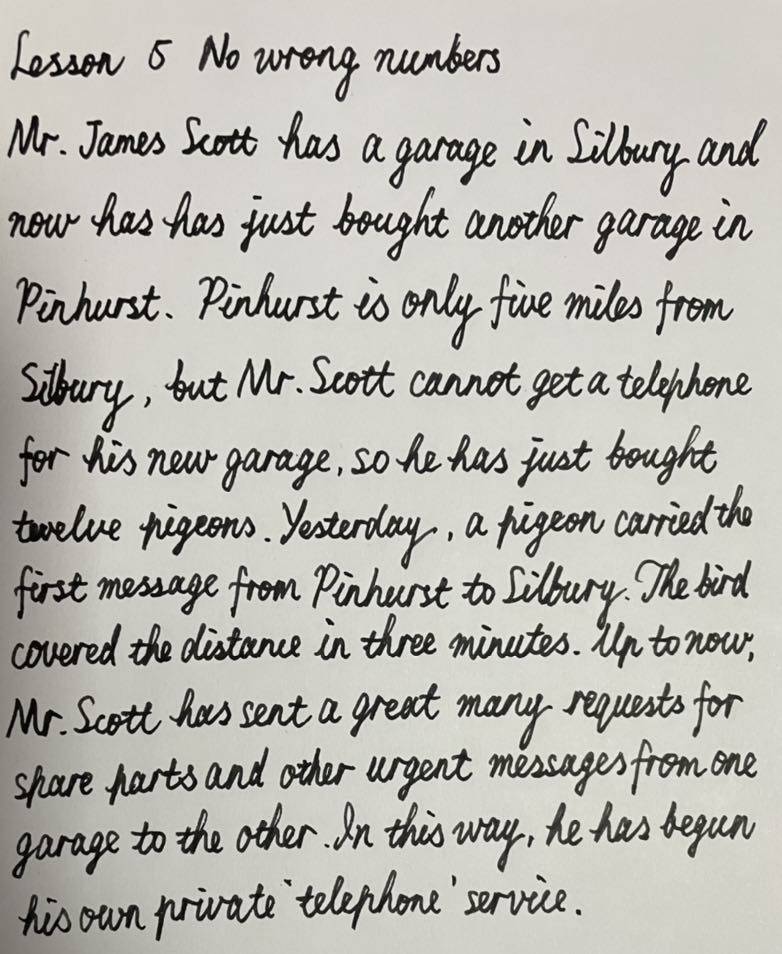 Lesson 5 No wrong numbers
Mr. James Scott has a garage in Silbury and
now has has just bought another garage in
Pinhurst. Pinhurst is only five miles from
Silbury, but Mr. Scott cannot get a telephone
for his new garage, so he has just bought
twelve pigeons. Yesterday, a pigeon carried the
first message from Pinhurst to Silbury. The bird
covered the distance in three minutes. Up to now,
Mr. Scott has sent a great many requests for
spare parts and other urgent messages from one
garage to the other. In this way, he has begun
his own private 'telephone' service.